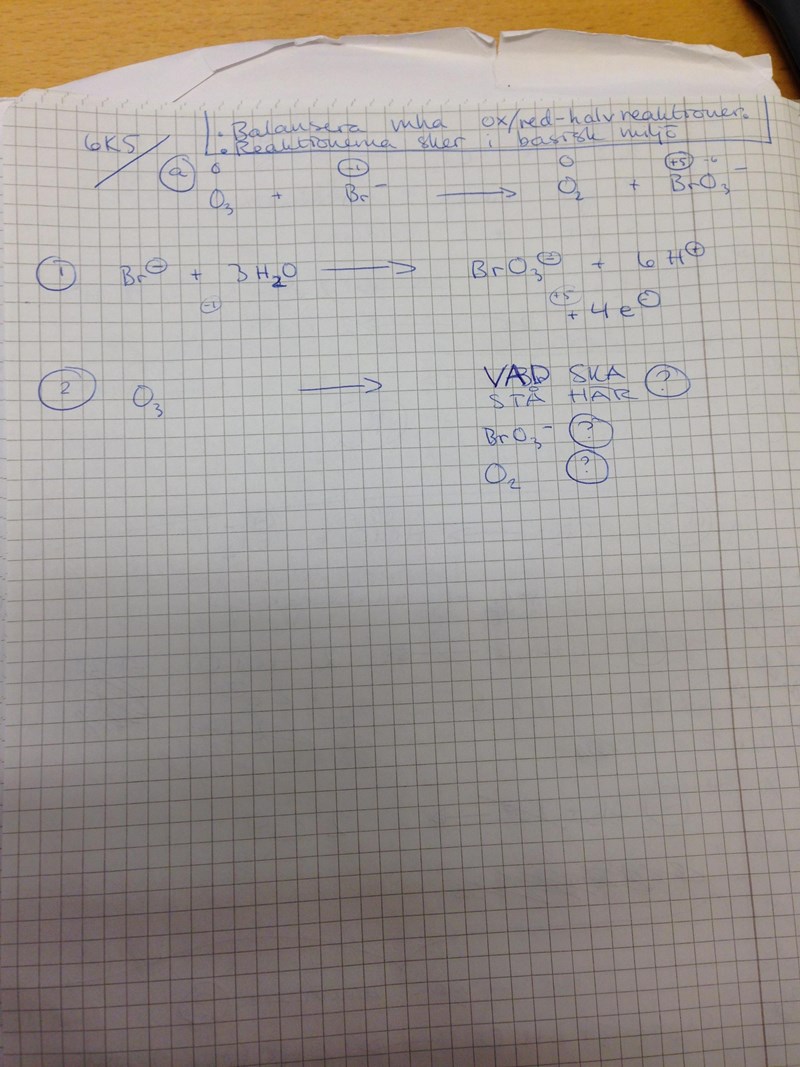 6K5
• Balansera mha ox/red-halvreaktioner.
• Reaktionerna sker i basisk miljö
0 -1 0 +5 -6
a O₃ + Br⁻ → O₂ + BrO₃⁻
1 Br⊖ + 3H₂O → BrO₃⊖ + 6H⊕
-1 +5 + 4e⊖
2 O₃ → VAD SKA
STÅ HÄR ?
BrO₃⁻ ?
O₂ ?